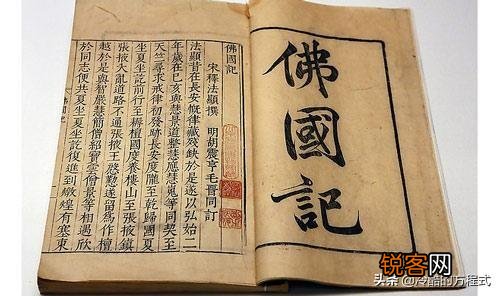 佛國記
佛國記
宋釋法顯撰 明胡震亨毛晉同訂
法顯昔在長安慨律藏殘缺於是遂以弘始二
年歲在己亥與慧景道整慧應慧嵬等同契至
天竺尋求戒律初發跡長安度隴至乾歸國夏
坐夏坐訖前行至耨檀國度養樓山至張掖鎮
張掖大亂道路不通張掖王慇懃遂留為作檀
越於是與智嚴慧簡僧紹寶雲僧景等相遇欣
於同志便共夏坐夏坐訖復進到燉煌有塞東
锐客网
头条 @冷酷的方程式